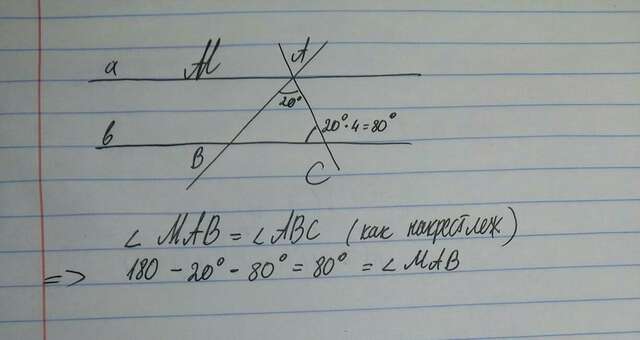 a M A
20°
b 20°·4=80°
B
C
∠ MAB = ∠ABC (как накрест леж.)
=> 180 - 20° - 80° = 80° = ∠ MAB